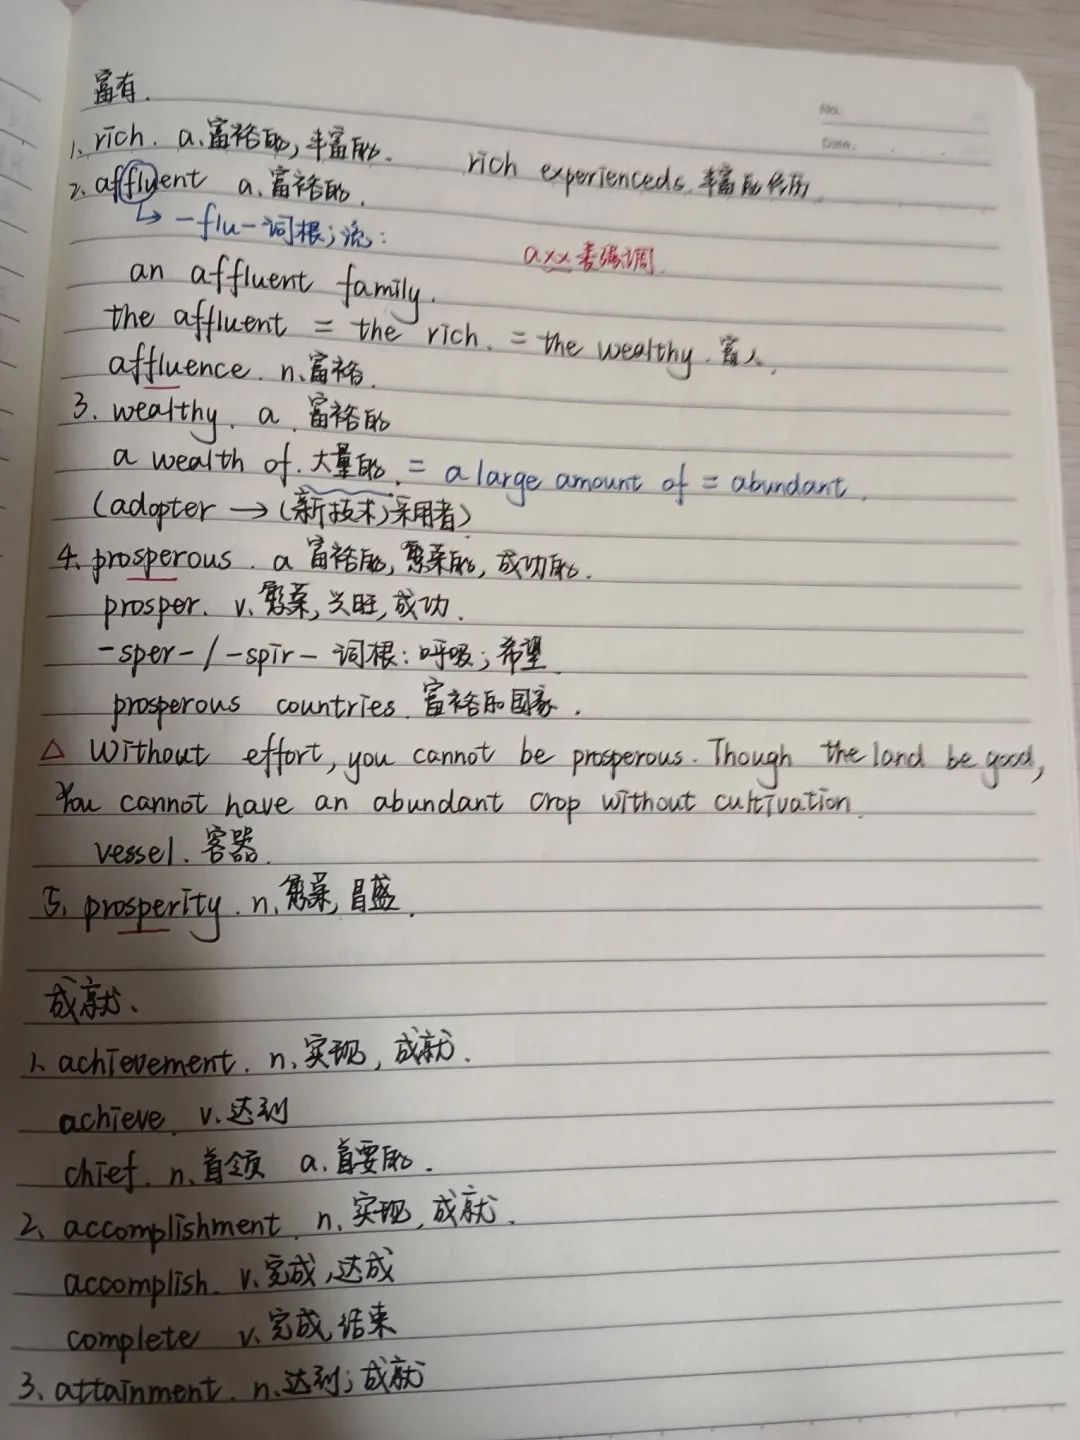 No.
Date.
富有.
1、rich. a.富裕的,丰富的. rich experienceds.丰富的经历
2、affluent a.富裕的.
↳ -flu-词根;流: axx 表强调.
an affluent family.
the affluent = the rich. = the wealthy.富人.
affluence. n.富裕.
3、wealthy. a.富裕的
a wealth of.大量的. = a large amount of = abundant.
(adopter → (新技术)采用者)
4、prosperous. a 富裕的,繁荣的,成功的.
prosper. v.繁荣,兴旺,成功.
-sper- / -spir- 词根:呼吸;希望.
prosperous countries.富裕的国家.
△ Without effort, you cannot be prosperous. Though the land be good,
You cannot have an abundant crop without cultivation.
vessel.容器.
5、prosperity. n.繁荣,昌盛.
成就、
1、achievement. n.实现,成就.
achieve. v.达到
chief. n.首领 a.首要的.
2、accomplishment. n.实现,成就.
accomplish. v.完成,达成
complete v.完成,结束
3、attainment. n.达到;成就